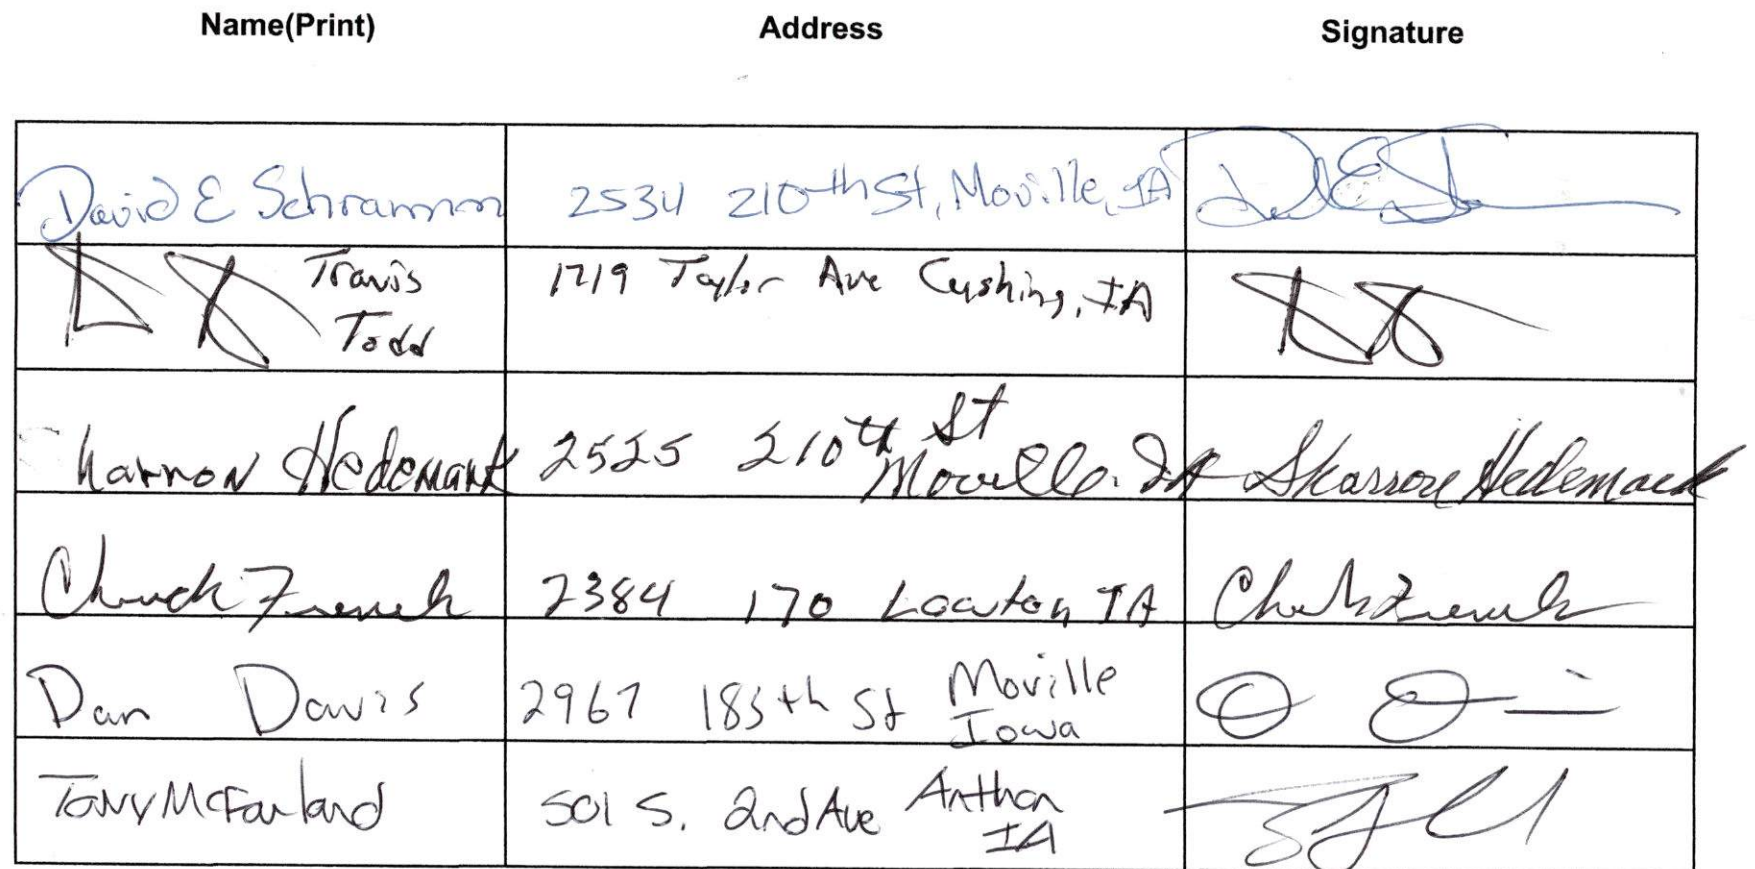 Name(Print) Address Signature
David E Schramm 2534 210th St, Moville, IA
Travis Todd 1719 Taylor Ave Cushing, IA
Sharron Hedemark 2525 210th St Moville, IA Sharron Hedemark
Chuck French 2384 170 Lawton IA Chuck French
Dan Davis 2967 185th St Moville Iowa
Tony McFarland 501 S. 2nd Ave Anthon IA